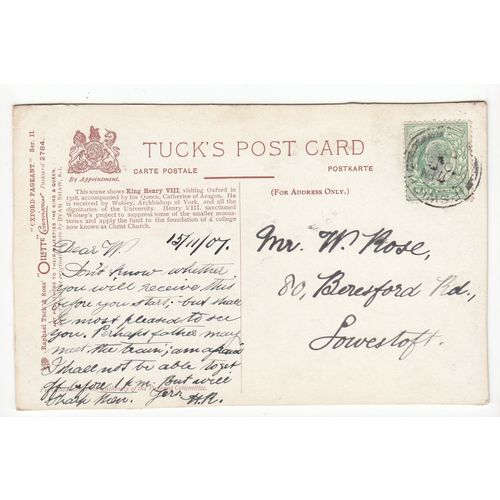 TUCK'S POST CARD
CARTE POSTALE
POSTKARTE
By Appointment.
(FOR ADDRESS ONLY.)
This scene shows King Henry VIII. visiting Oxford in
1518, accompanied by his Queen, Catherine of Aragon. He
is received by Wolsey, Archbishop of York, and all the
dignitaries of the University. Henry VIII. sanctioned
Wolsey's project to suppress some of the smaller monas-
teries and apply the fund to the foundation of a college
now known as Christ Church.
Dear W. 15/11/07.
Don't know whether
you will receive this
before you start, but shall
be most pleased to see
you. Perhaps father may
meet the train; am afraid
I shall not be able to get
off before 1 p.m. but will
then. Yrs
H.R.
Committee.
Mr. W. Rose,
80, Beresford Rd.,
Lowestoft.
"OXFORD PAGEANT." Ser. II.
Raphael Tuck & Sons' "OILETTE" Postcard 2784.
TO THEIR MAJESTIES THE KING & QUEEN.
BYAM SHAW, R.I.